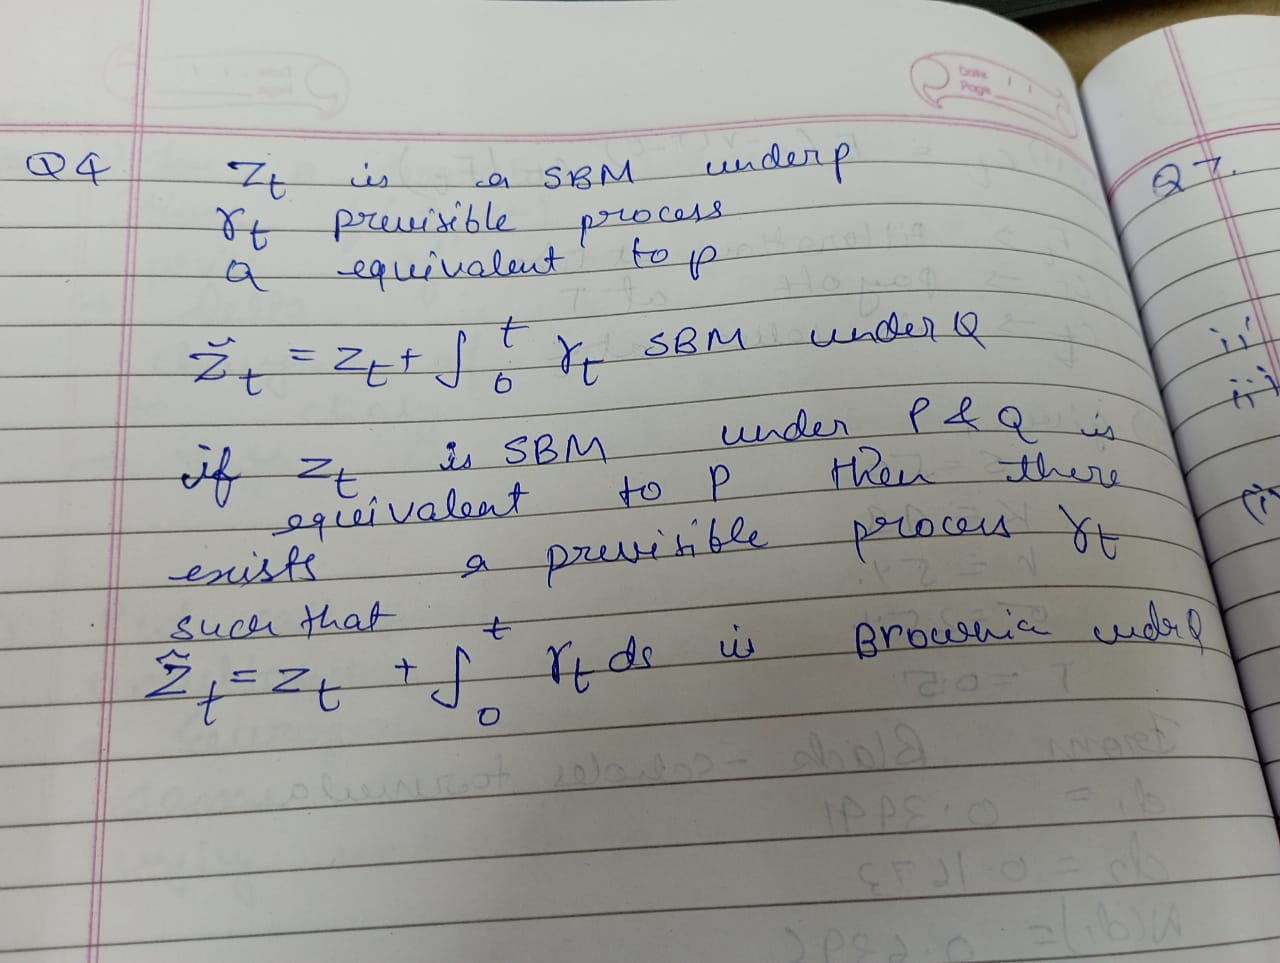 Date
Page
Q4 Zt is a SBM under p
γt previsible process
Q equivalent to p
Z̃t = Zt + ∫₀ᵗ γt SBM under Q
if Zt is SBM under P & Q is
equivalent to P then there
exists a previsible process γt
such that
Z̃t = Zt + ∫₀ᵗ γt ds is Brownia undr Q
Q7.
ii)
iii)